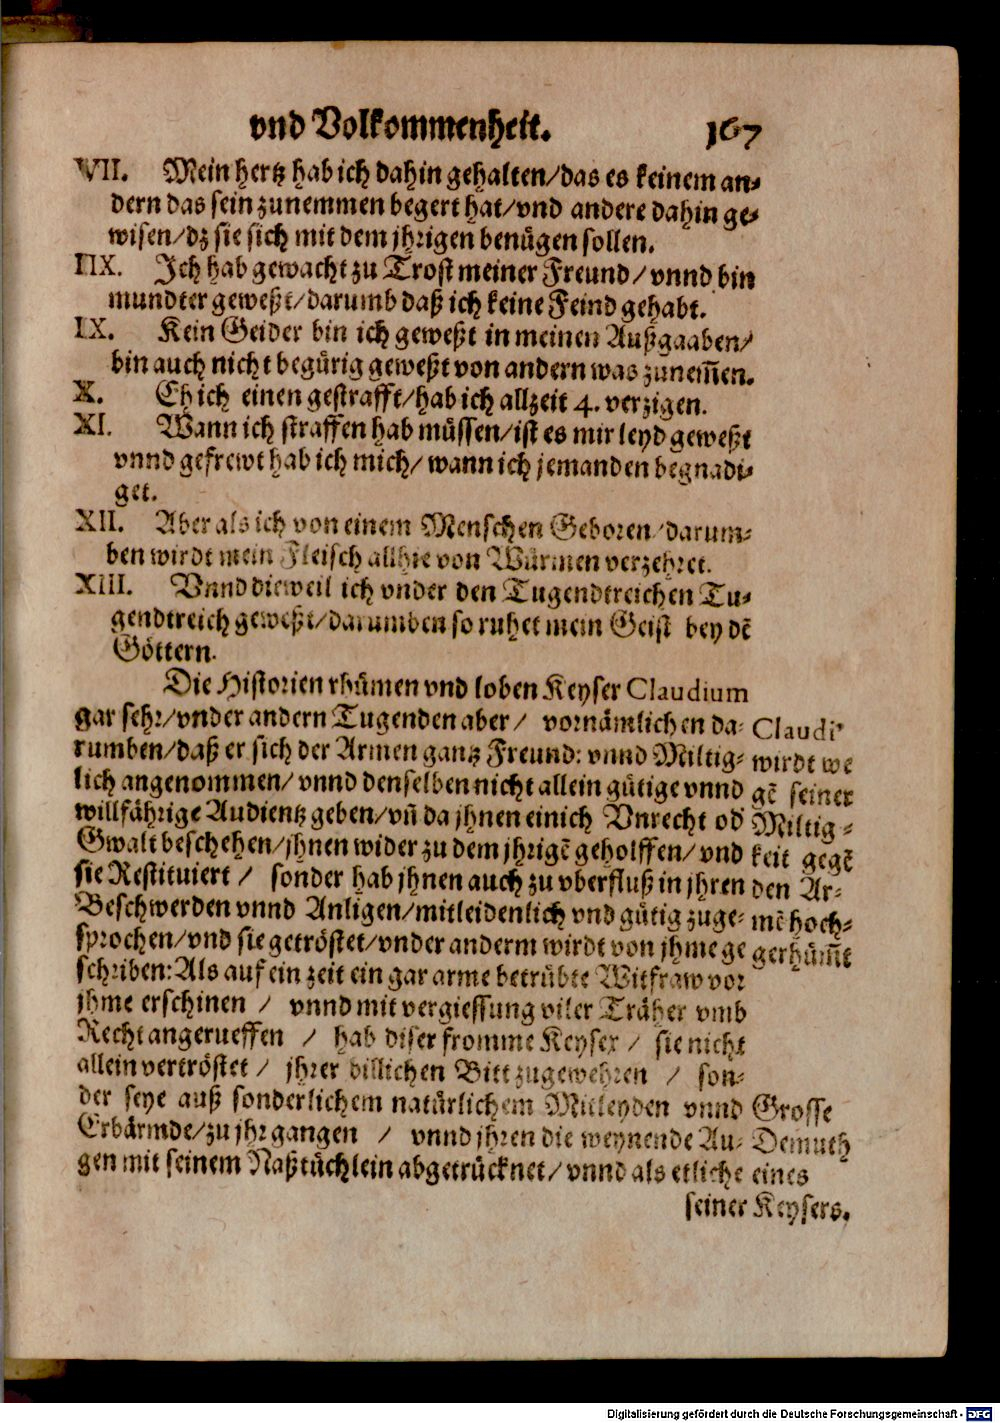 vnd Volkommenheit. 167
VII. Mein hertz hab ich dahin gehalten/das es keinem an-
dern das sein zunemmen begert hat/vnd andere dahin ge-
wisen/dz sie sich mit dem jhrigen benügen sollen.
IIX. Ich hab gewacht zu Trost meiner Freund/vnnd bin
mundter geweßt/darumb daß ich keine Feind gehabt.
IX. Kein Geider bin ich geweßt in meinen Außgaaben/
bin auch nicht begürig geweßt von andern was zunem̄en.
X. Eh ich einen gestrafft/hab ich allzeit 4. verzigen.
XI. Wann ich straffen hab müssen/ist es mir leyd geweßt
vnnd gefrewt hab ich mich/wann ich jemanden begnadi-
get.
XII. Aber als ich von einem Menschen Geboren/darum-
ben wirdt mein Fleisch allhie von Würmen verzehret.
XIII. Vnnd dieweil ich vnder den Tugendtreichen Tu-
gendtreich geweßt/darumben so ruhet mein Geist bey dē
Göttern.
Die Historien rhümen vnd loben Keyser Claudium
gar sehr/vnder andern Tugenden aber/ vornämlichen da-
rumben/daß er sich der Armen gantz Freund: vnnd Miltig-
lich angenommen/vnnd denselben nicht allein gütige vnnd
willfährige Audientz geben/vn̄ da jhnen einich Vnrecht od'
Gwalt beschehen/jhnen wider zu dem jhrigē geholffen/vnd
sie Restituiert/ sonder hab jhnen auch zu vberfluß in jhren
Beschwerden vnnd Anligen/mitleidenlich vnd gütig zuge-
sprochen/vnd sie getröstet/vnder anderm wirdt von jhme ge
schriben: Als auf ein zeit ein gar arme betrübte Witfraw vor
jhme erschinen / vnnd mit vergiessung viler Träher vmb
Recht angerueffen / hab diser fromme Keyser/ sie nicht
allein vertröstet/ jhrer billichen Bitt zugewehren / son-
der seye auß sonderlichem natürlichem Mitleyden vnnd
Erbärmde/zu jhr gangen / vnnd jhren die weynende Au-
gen mit seinem Naßtüchlein abgetrücknet/vnnd als etliche
seiner
Claudi'
wirdt we
gē seiner
Miltig-
keit gegē
den Ar-
mē hoch-
gerhüm̄t
Grosse
Demuth
eines
Keysers.
Digitalisierung gefördert durch die Deutsche Forschungsgemeinschaft - DFG